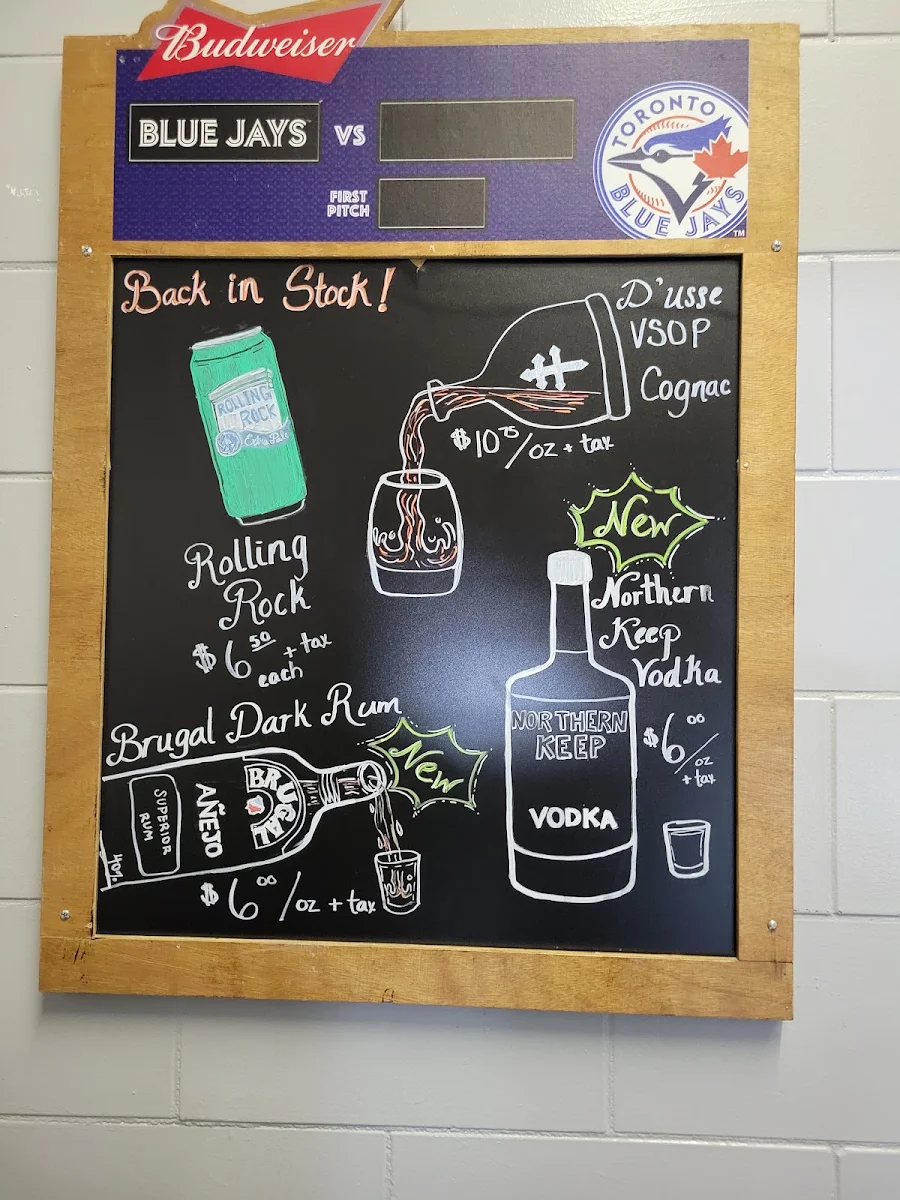 Budweiser
BLUE JAYS™ VS
FIRST
PITCH
TORONTO
BLUE JAYS
TM
Back in Stock!
ROLLING
ROCK
Extra Pale
Rolling
Rock
$6.50 + tax
each
D'usse
VSOP
Cognac
$10.75/oz + tax
New
Northern
Keep
Vodka
$6.00/oz
+ tax
NORTHERN
KEEP
VODKA
Brugal Dark Rum
New
BRUGAL
AÑEJO
SUPERIOR
RUM
40%
$6.00/oz + tax